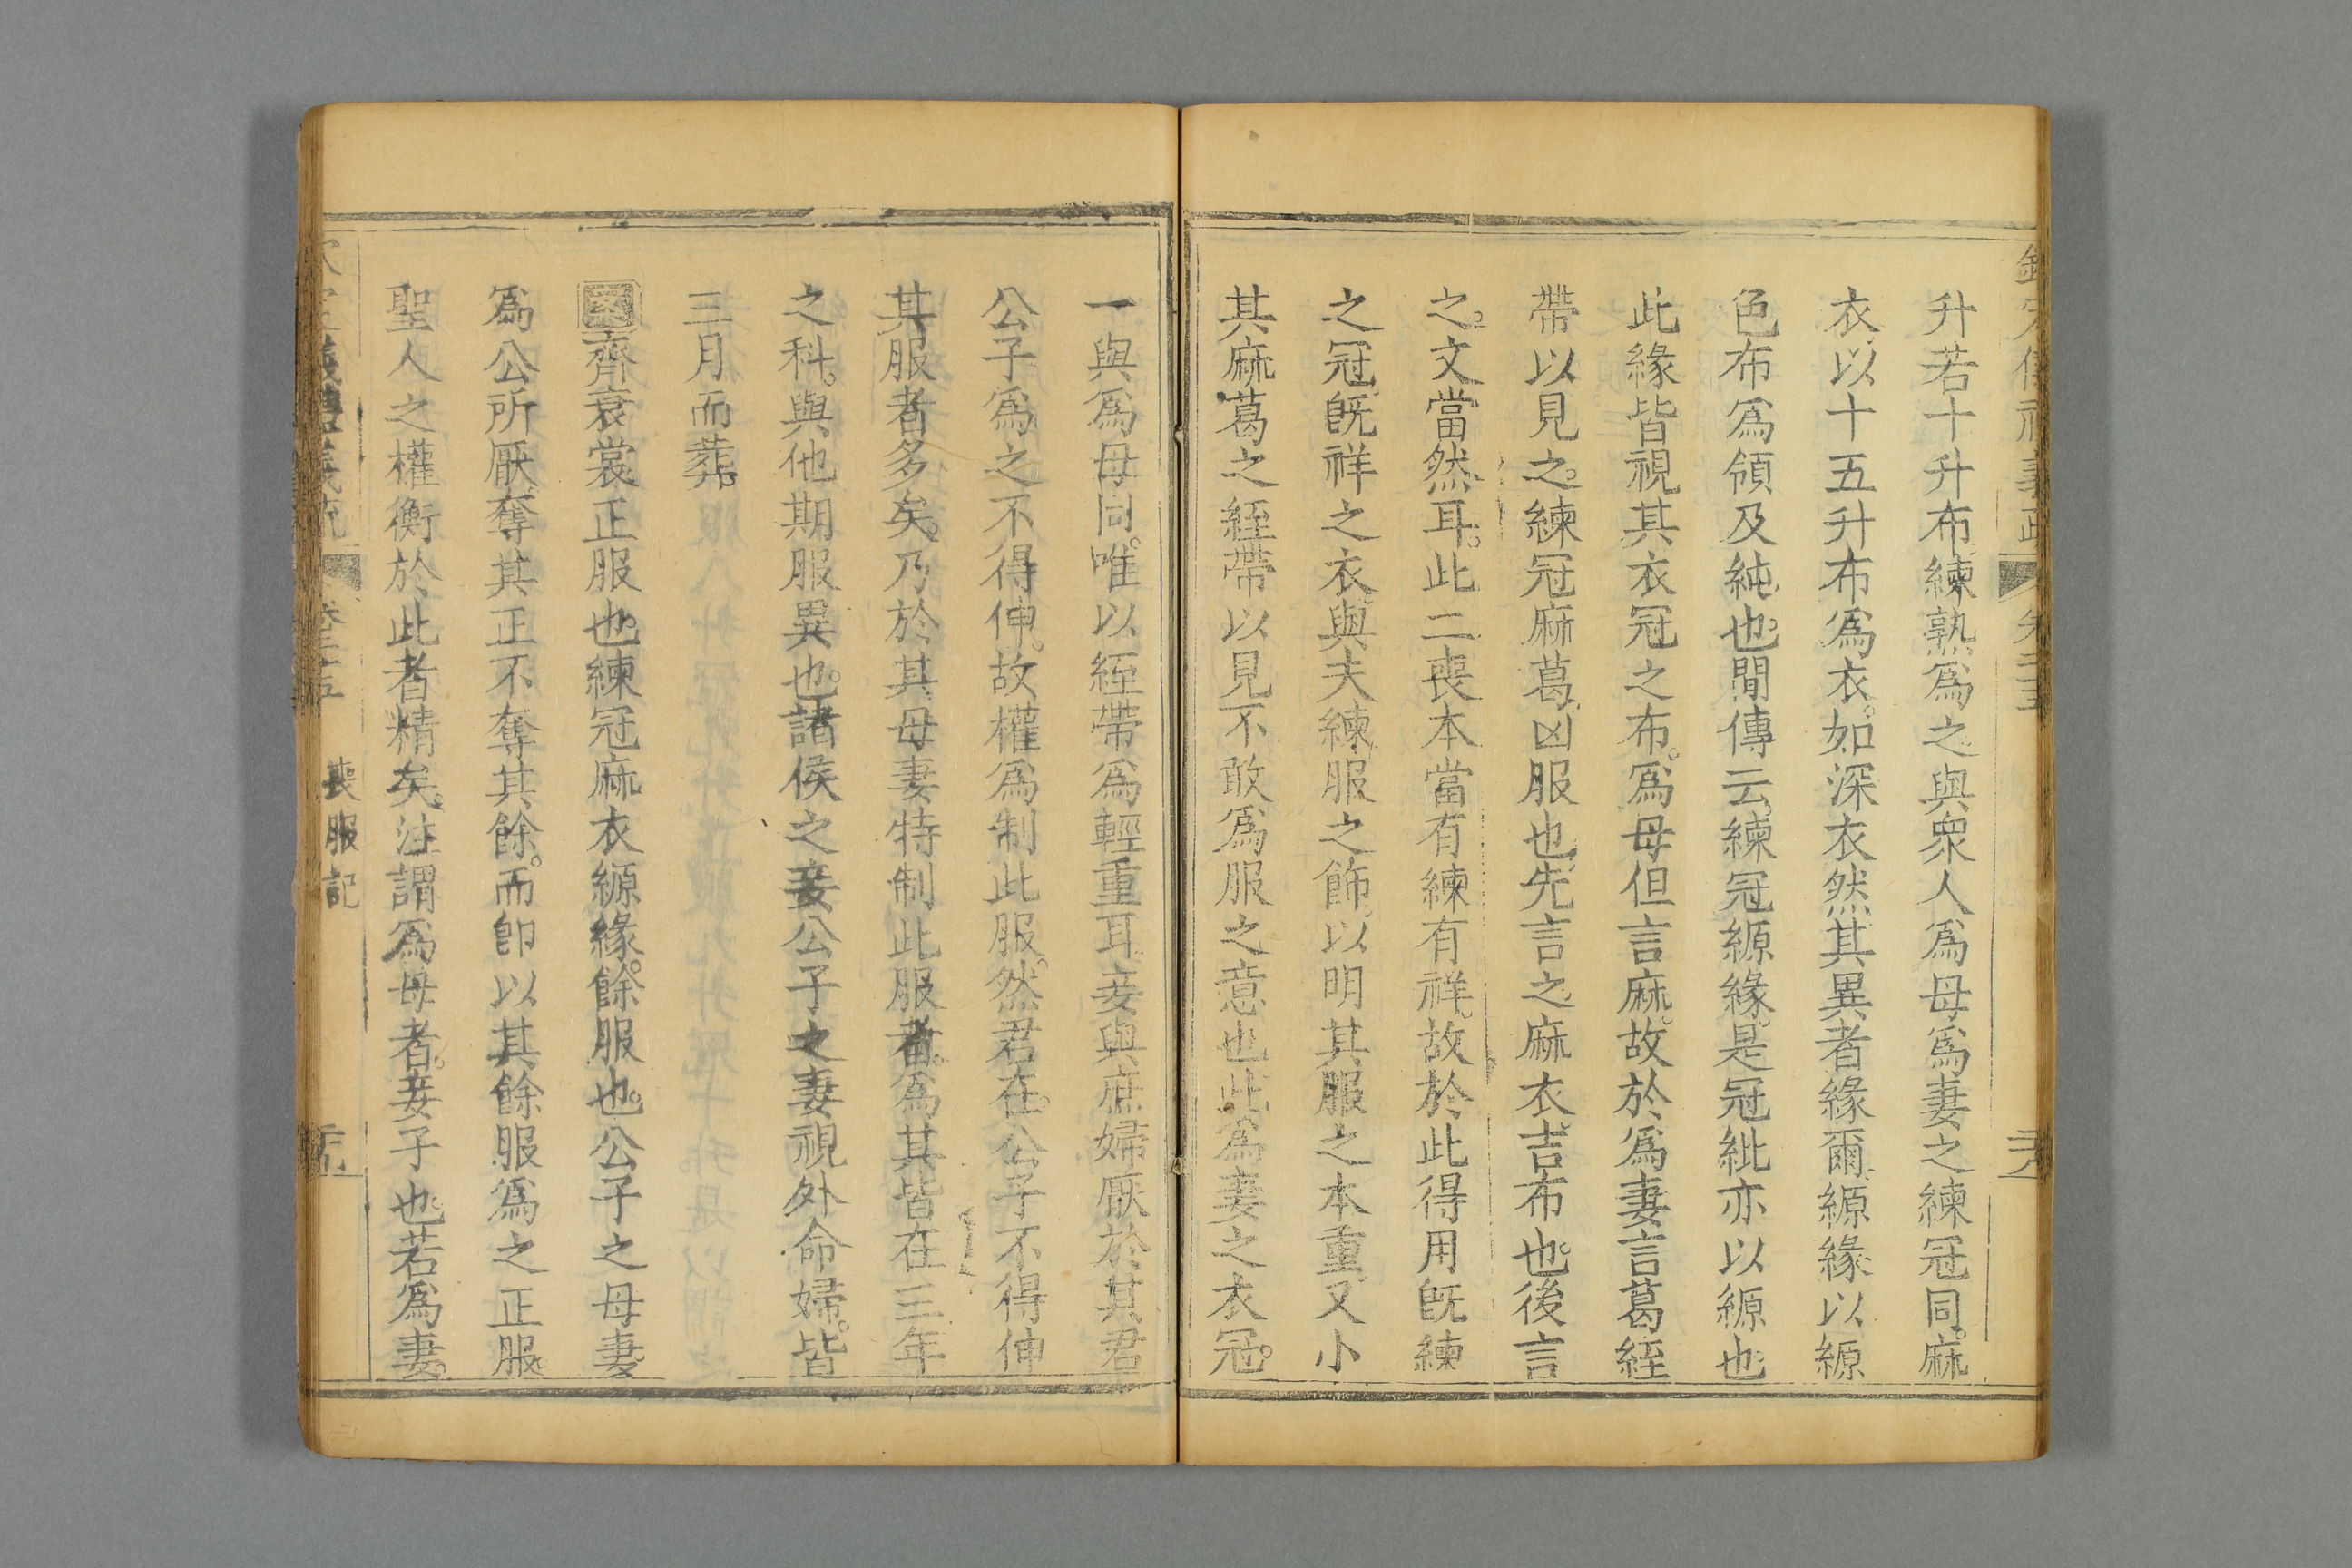 升若十升布練熟爲之與衆人爲母爲妻之練冠同麻
衣以十五升布爲衣如深衣然其異者緣爾縓緣以縓
色布爲領及純也間傳云練冠縓緣是冠紕亦以縓也
此緣皆視其衣冠之布爲母但言麻故於爲妻言葛絰
帶以見之練冠麻葛凶服也先言之麻衣吉布也後言
之文當然耳此二喪本當有練有祥故於此得用旣練
之冠旣祥之衣與夫練服之飾以明其服之本重又小
其麻葛之絰帶以見不敢爲服之意也此爲妻之衣冠
一與爲母同唯以絰帶爲輕重耳妾與庶婦厭於其君
公子爲之不得伸故權爲制此服然君在公子不得伸
其服者多矣乃於其母妻特制此服者爲其皆在三年
之科與他期服異也諸侯之妾公子之妻視外命婦皆
三月而葬
齊衰裳正服也練冠麻衣縓緣餘服也公子之母妻
爲公所厭奪其正不奪其餘而卽以其餘服爲之正服
聖人之權衡於此者精矣注謂爲母者妾子也若爲妻
儀禮義疏 喪服記